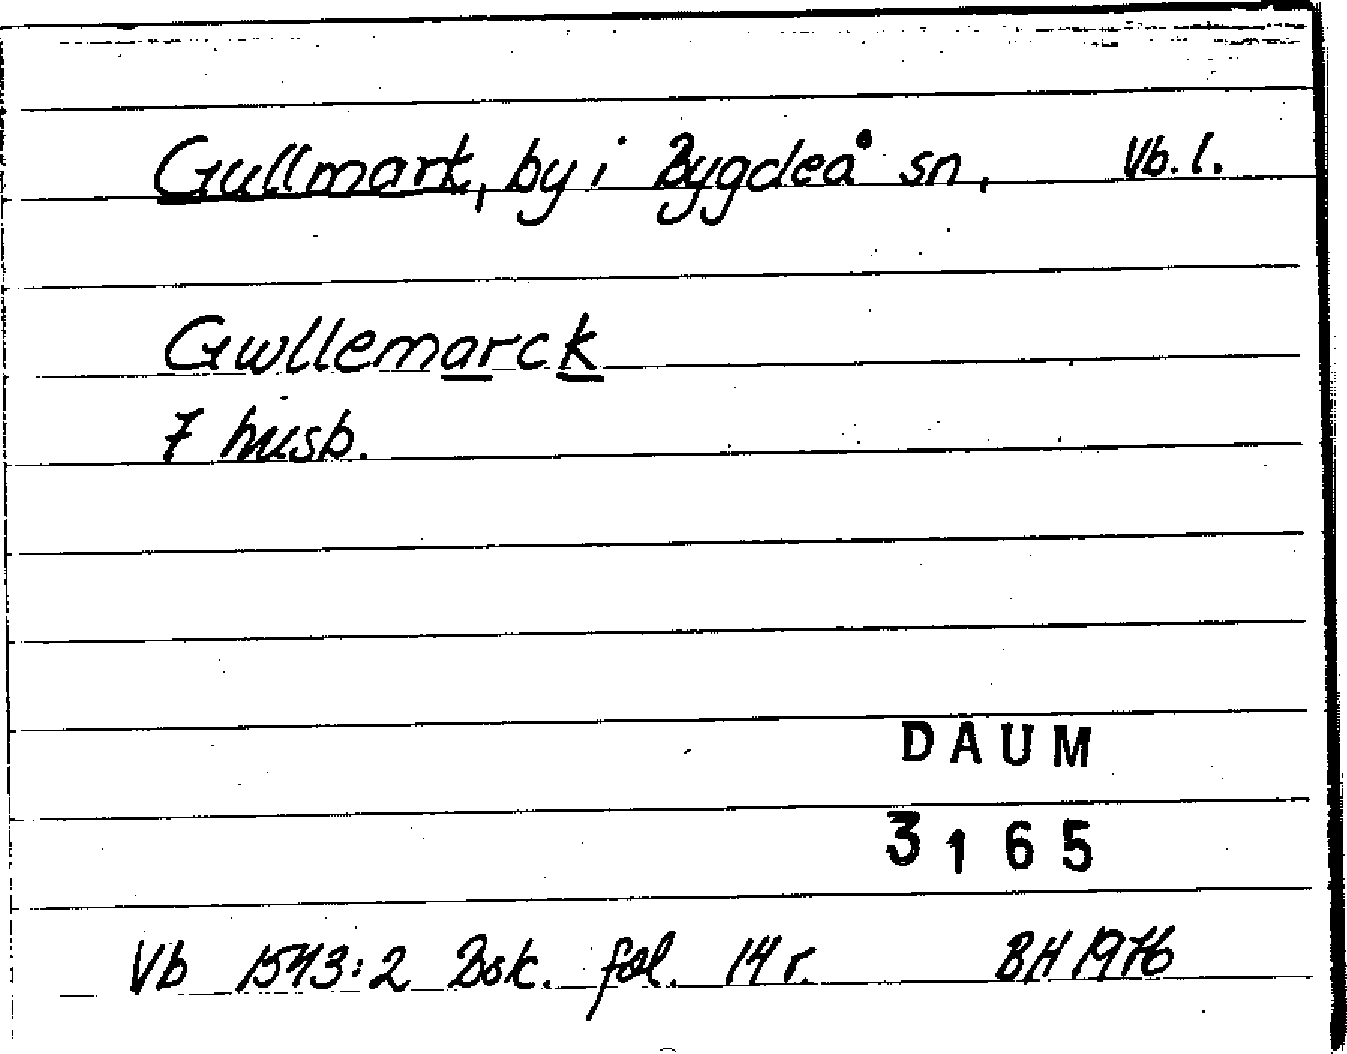 Gullmark, by i Bygdeå sn, Vb. l.
Gwllemarck
7 husb.
DAUM
3165
Vb 1543:2 Bsk. fol. 14 r. BH 1976